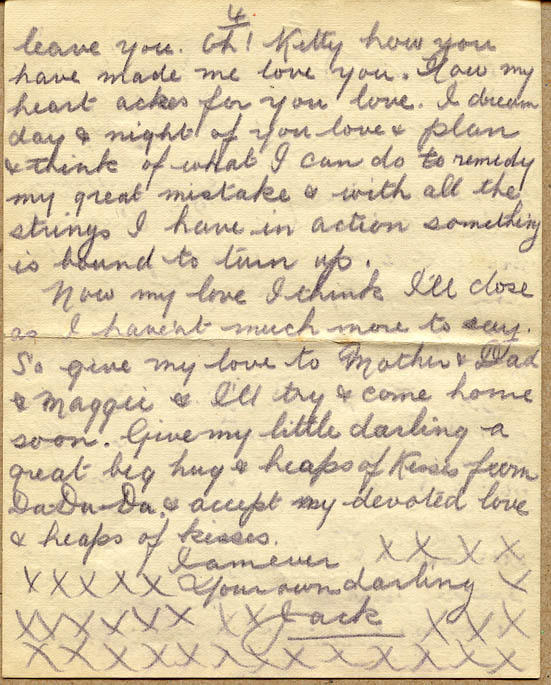 4
leave you. Oh! Kitty how you
have made me love you. How my
heart aches for you love. I dream
day & night of you love & plan
& think of what I can do to remedy
my great mistake & with all the
strings I have in action something
is bound to turn up.
Now my love I think I'll close
as I have'nt much more to say.
So give my love to Mother & Dad
& Maggie & I'll try & come home
soon. Give my little darling a
great big hug & heaps of Kisses from
Da-Da-Da. & accept my devoted love
& heaps of kisses.
I am ever X X X X
X X X X X Your own darling X
X X X X X X X X Jack X X X
X X X X X X X X X X X X X